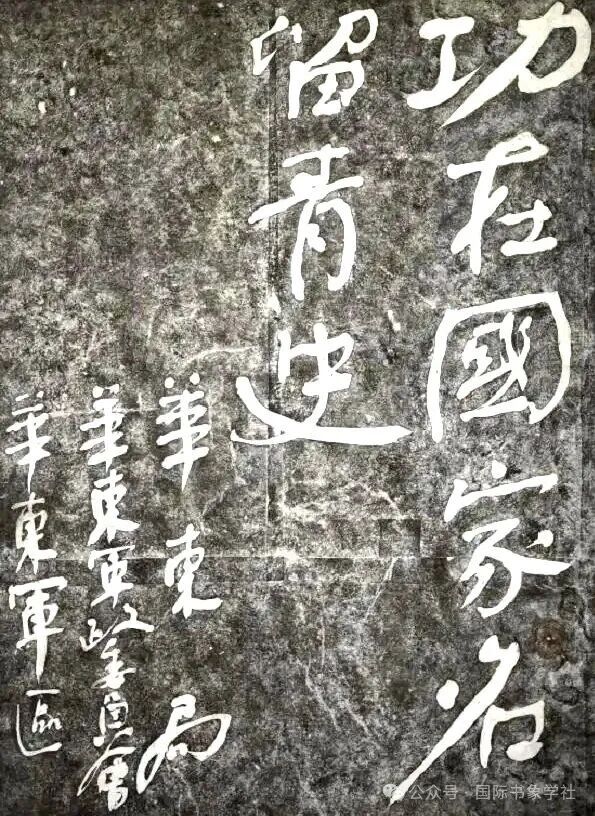 功在國家名
留青史
華東局
華東軍政委員會
華東軍區
公众号 · 国际书象学社